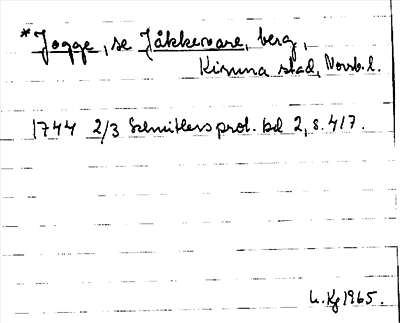 *Jogge, se Jåkkevare, berg,
Kiruna stad, Norrb. l.
1744 2/3 Schnitlers prot. bd 2, s. 417.
L. Kg 1965.